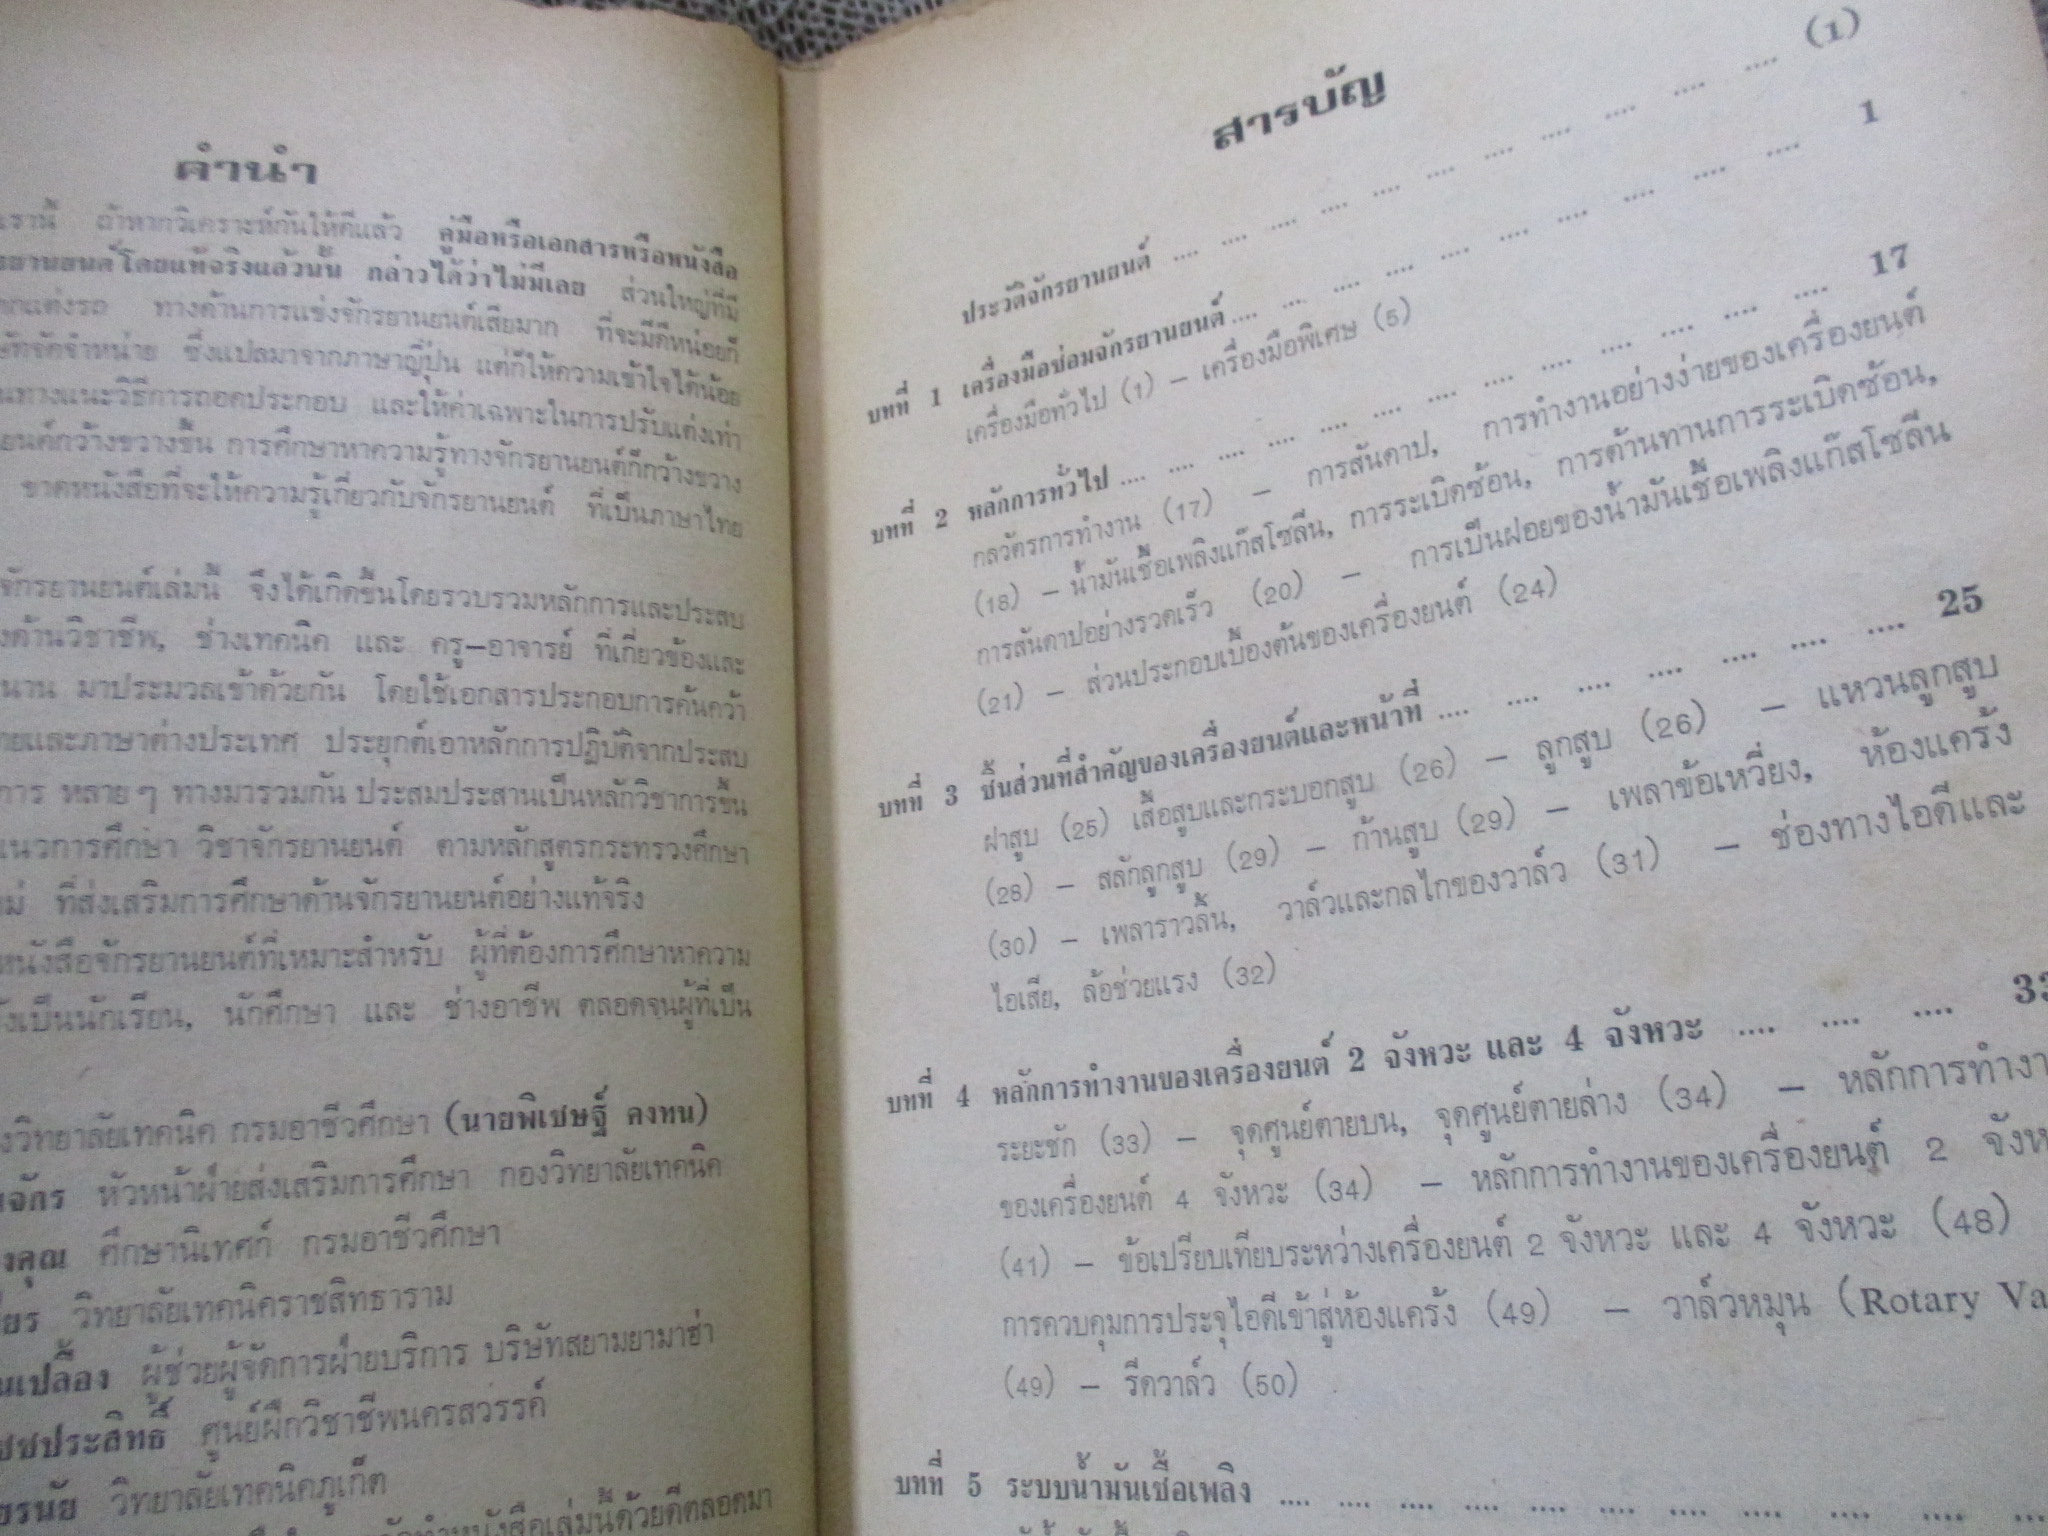 คำนำ
เรานี้ ถ้าหากวิเคราะห์กันให้ดีแล้ว คู่มือหรือเอกสารหรือหนังสือ
รยานยนต์โดยแท้จริงแล้วนั้น กล่าวได้ว่าไม่มีเลย ส่วนใหญ่ที่มี
กแต่งรถ ทางด้านการแข่งจักรยานยนต์เสียมาก ที่จะมีดีหน่อยก็
ษัทจัดจำหน่าย ซึ่งแปลมาจากภาษาญี่ปุ่น แต่ก็ให้ความเข้าใจได้น้อย
นทางแนะวิธีการถอดประกอบ และให้ค่าเฉพาะในการปรับแต่งเท่า
ยนต์กว้างขวางขึ้น การศึกษาหาความรู้ทางจักรยานยนต์ก็กว้างขวาง
ขาดหนังสือที่จะให้ความรู้เกี่ยวกับจักรยานยนต์ ที่เป็นภาษาไทย
จักรยานยนต์เล่มนี้ จึงได้เกิดขึ้นโดยรวบรวมหลักการและประสบ
งด้านวิชาชีพ, ช่างเทคนิค และ ครู–อาจารย์ ที่เกี่ยวข้องและ
นาน มาประมวลเข้าด้วยกัน โดยใช้เอกสารประกอบการค้นคว้า
ยและภาษาต่างประเทศ ประยุกต์เอาหลักการปฏิบัติจากประสบ
การ หลายๆ ทางมารวมกัน ประสมประสานเป็นหลักวิชาการขึ้น
แนวการศึกษา วิชาจักรยานยนต์ ตามหลักสูตรกระทรวงศึกษา
ม่ ที่ส่งเสริมการศึกษาด้านจักรยานยนต์อย่างแท้จริง
หนังสือจักรยานยนต์ที่เหมาะสำหรับ ผู้ที่ต้องการศึกษาหาความ
งเป็นนักเรียน, นักศึกษา และ ช่างอาชีพ ตลอดจนผู้ที่เป็น
งวิทยาลัยเทคนิค กรมอาชีวศึกษา (นายพิเชษฐ์ คงทน)
จักร หัวหน้าฝ่ายส่งเสริมการศึกษา กองวิทยาลัยเทคนิค
งคุณ ศึกษานิเทศก์ กรมอาชีวศึกษา
ยร วิทยาลัยเทคนิคราชสิทธาราม
นเปลื้อง ผู้ช่วยผู้จัดการฝ่ายบริการ บริษัทสยามยามาฮ่า
ชประสิทธิ์ ศูนย์ฝึกวิชาชีพนครสวรรค์
ยรนัย วิทยาลัยเทคนิคภูเก็ต
ทำหนังสือเล่มนี้ด้วยดีตลอดมา
สารบัญ
ประวัติจักรยานยนต์ .... .... .... .... .... .... .... .... .... .... .... (1)
บทที่ 1 เครื่องมือซ่อมจักรยานยนต์ .... .... .... .... .... .... .... .... .... .... 1
เครื่องมือทั่วไป (1) – เครื่องมือพิเศษ (5)
บทที่ 2 หลักการทั่วไป .... .... .... .... .... .... .... .... .... .... .... .... .... 17
กลวัตรการทำงาน (17) – การสันดาป, การทำงานอย่างง่ายของเครื่องยนต์
(18) – น้ำมันเชื้อเพลิงแก๊สโซลีน, การระเบิดซ้อน, การต้านทานการระเบิดซ้อน,
การสันดาปอย่างรวดเร็ว (20) – การเป็นฝอยของน้ำมันเชื้อเพลิงแก๊สโซลีน
(21) – ส่วนประกอบเบื้องต้นของเครื่องยนต์ (24)
บทที่ 3 ชิ้นส่วนที่สำคัญของเครื่องยนต์และหน้าที่ .... .... .... .... .... .... .... 25
ฝาสูบ (25) เสื้อสูบและกระบอกสูบ (26) – ลูกสูบ (26) – แหวนลูกสูบ
(28) – สลักลูกสูบ (29) – ก้านสูบ (29) – เพลาข้อเหวี่ยง, ห้องแคร้ง
(30) – เพลาราวลิ้น, วาล์วและกลไกของวาล์ว (31) – ช่องทางไอดีและ
ไอเสีย, ล้อช่วยแรง (32)
บทที่ 4 หลักการทำงานของเครื่องยนต์ 2 จังหวะ และ 4 จังหวะ .... .... .... 33
ระยะชัก (33) – จุดศูนย์ตายบน, จุดศูนย์ตายล่าง (34) – หลักการทำงา
ของเครื่องยนต์ 4 จังหวะ (34) – หลักการทำงานของเครื่องยนต์ 2 จังห
(41) – ข้อเปรียบเทียบระหว่างเครื่องยนต์ 2 จังหวะ และ 4 จังหวะ (48)
การควบคุมการประจุไอดีเข้าสู่ห้องแคร้ง (49) – วาล์วหมุน (Rotary Va
(49) – รีดวาล์ว (50)
บทที่ 5 ระบบน้ำมันเชื้อเพลิง .... .... .... .... .... .... .... .... .... .... ....